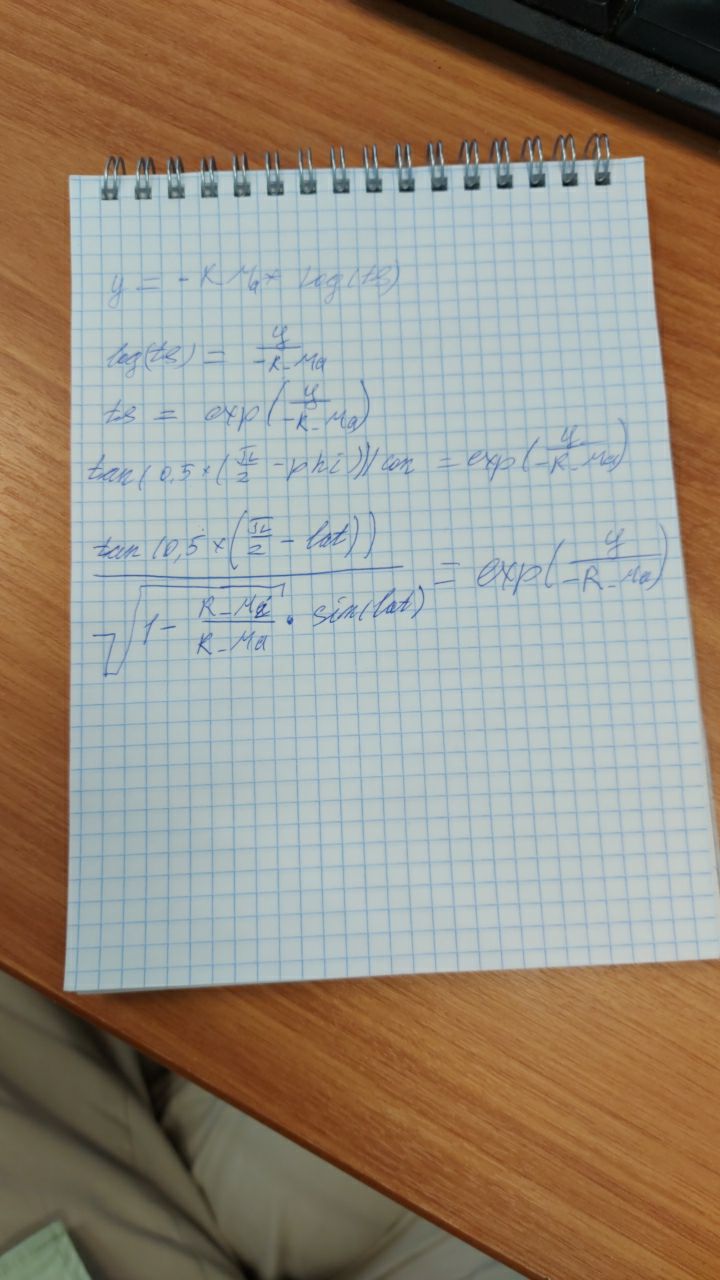 y = - R_Ma * log(ts)
log(ts) = y / -R_Ma
ts = exp( y / -R_Ma )
tan(0,5 × ( π/2 - phi )) / con = exp( y / -R_Ma )
tan(0,5 × ( π/2 - lat )) / √(1 - R_Mi / R_Ma) · sin(lat) = exp( y / -R_Ma )